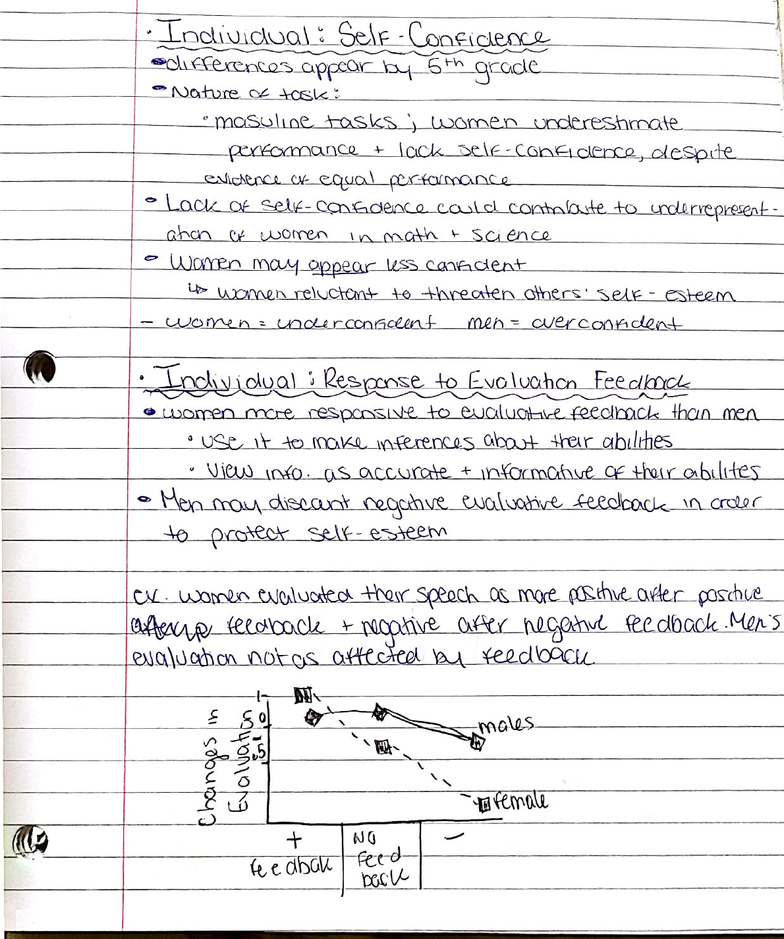 · Individual: Self-Confidence
• differences appear by 5th grade
• Nature of task:
• masuline tasks; women underestimate
performance + lack self-confidence, despite
evidence of equal performance
• Lack of self-confidence could contribute to underrepresent-
ation of women in math + science
• Women may appear less confident
↳ women reluctant to threaten others' self-esteem
- women = underconfident men = overconfident
· Individual: Response to Evaluation Feedback
• women more responsive to evaluative feedback than men
• use it to make inferences about their abilities
• View info. as accurate + informative of their abilites
• Men may discant negative evaluative feedback in order
to protect self-esteem
ex. women evaluated their speech as more positive after positive
feedback + negative after negative feedback. Men's
evaluation not as affected by feedback
Changes in
Evaluation
1
0
.5
males
female
+
feedbak
NO
feed
back
−